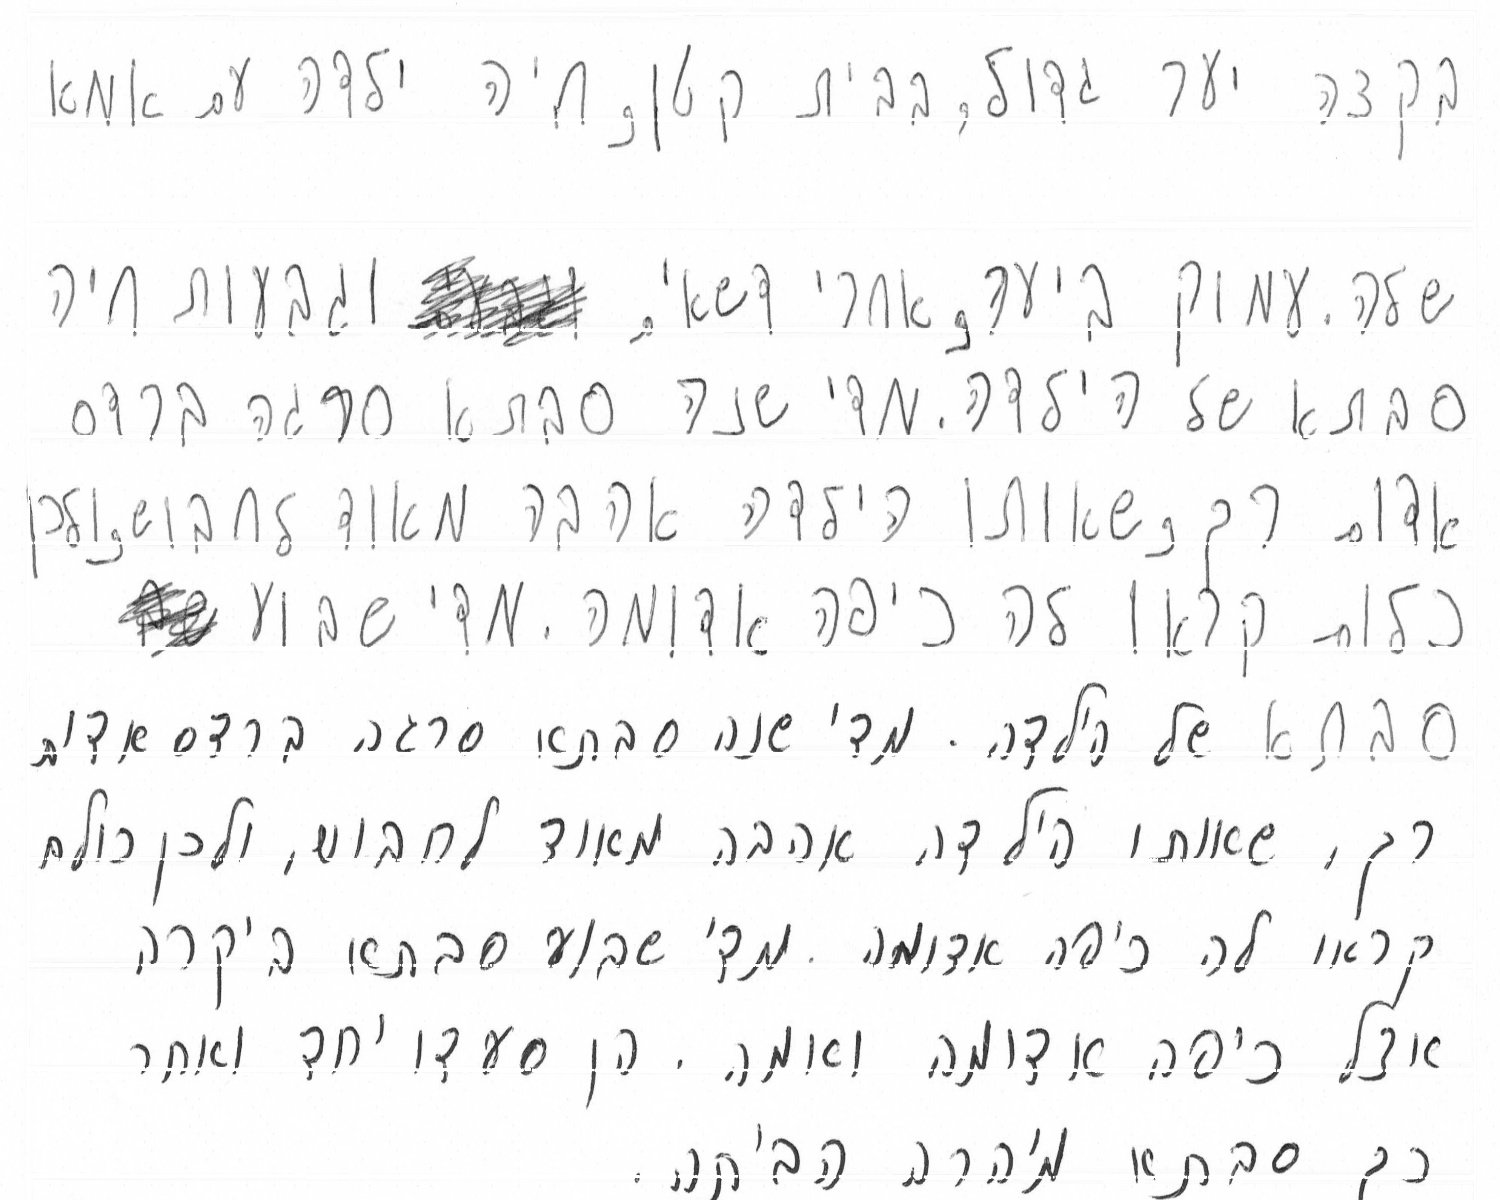 בקצה יער גדול, בבית קטן, חיה ילדה עם אמא
שלה. עמוק ביער, אחרי דשאים, וגבעות חיה
סבתא של הילדה. מדי שנה סבתא סרגה ברדס
אדום רך, שאותו הילדה אהבה מאוד לחבוש, ולכן
כלום קראו לה כיפה אדומה. מדי שבוע
סבתא של הילדה. מדי שנה סבתא סרגה ברדס אדום
רך, שאותו הילדה אהבה מאוד לחבוש, ולכן כולם
קראו לה כיפה אדומה. מדי שבוע סבתא ביקרה
אצל כיפה אדומה ואומה. הן סעדו יחד ואחר
כך סבתא מיהרה הביתה.